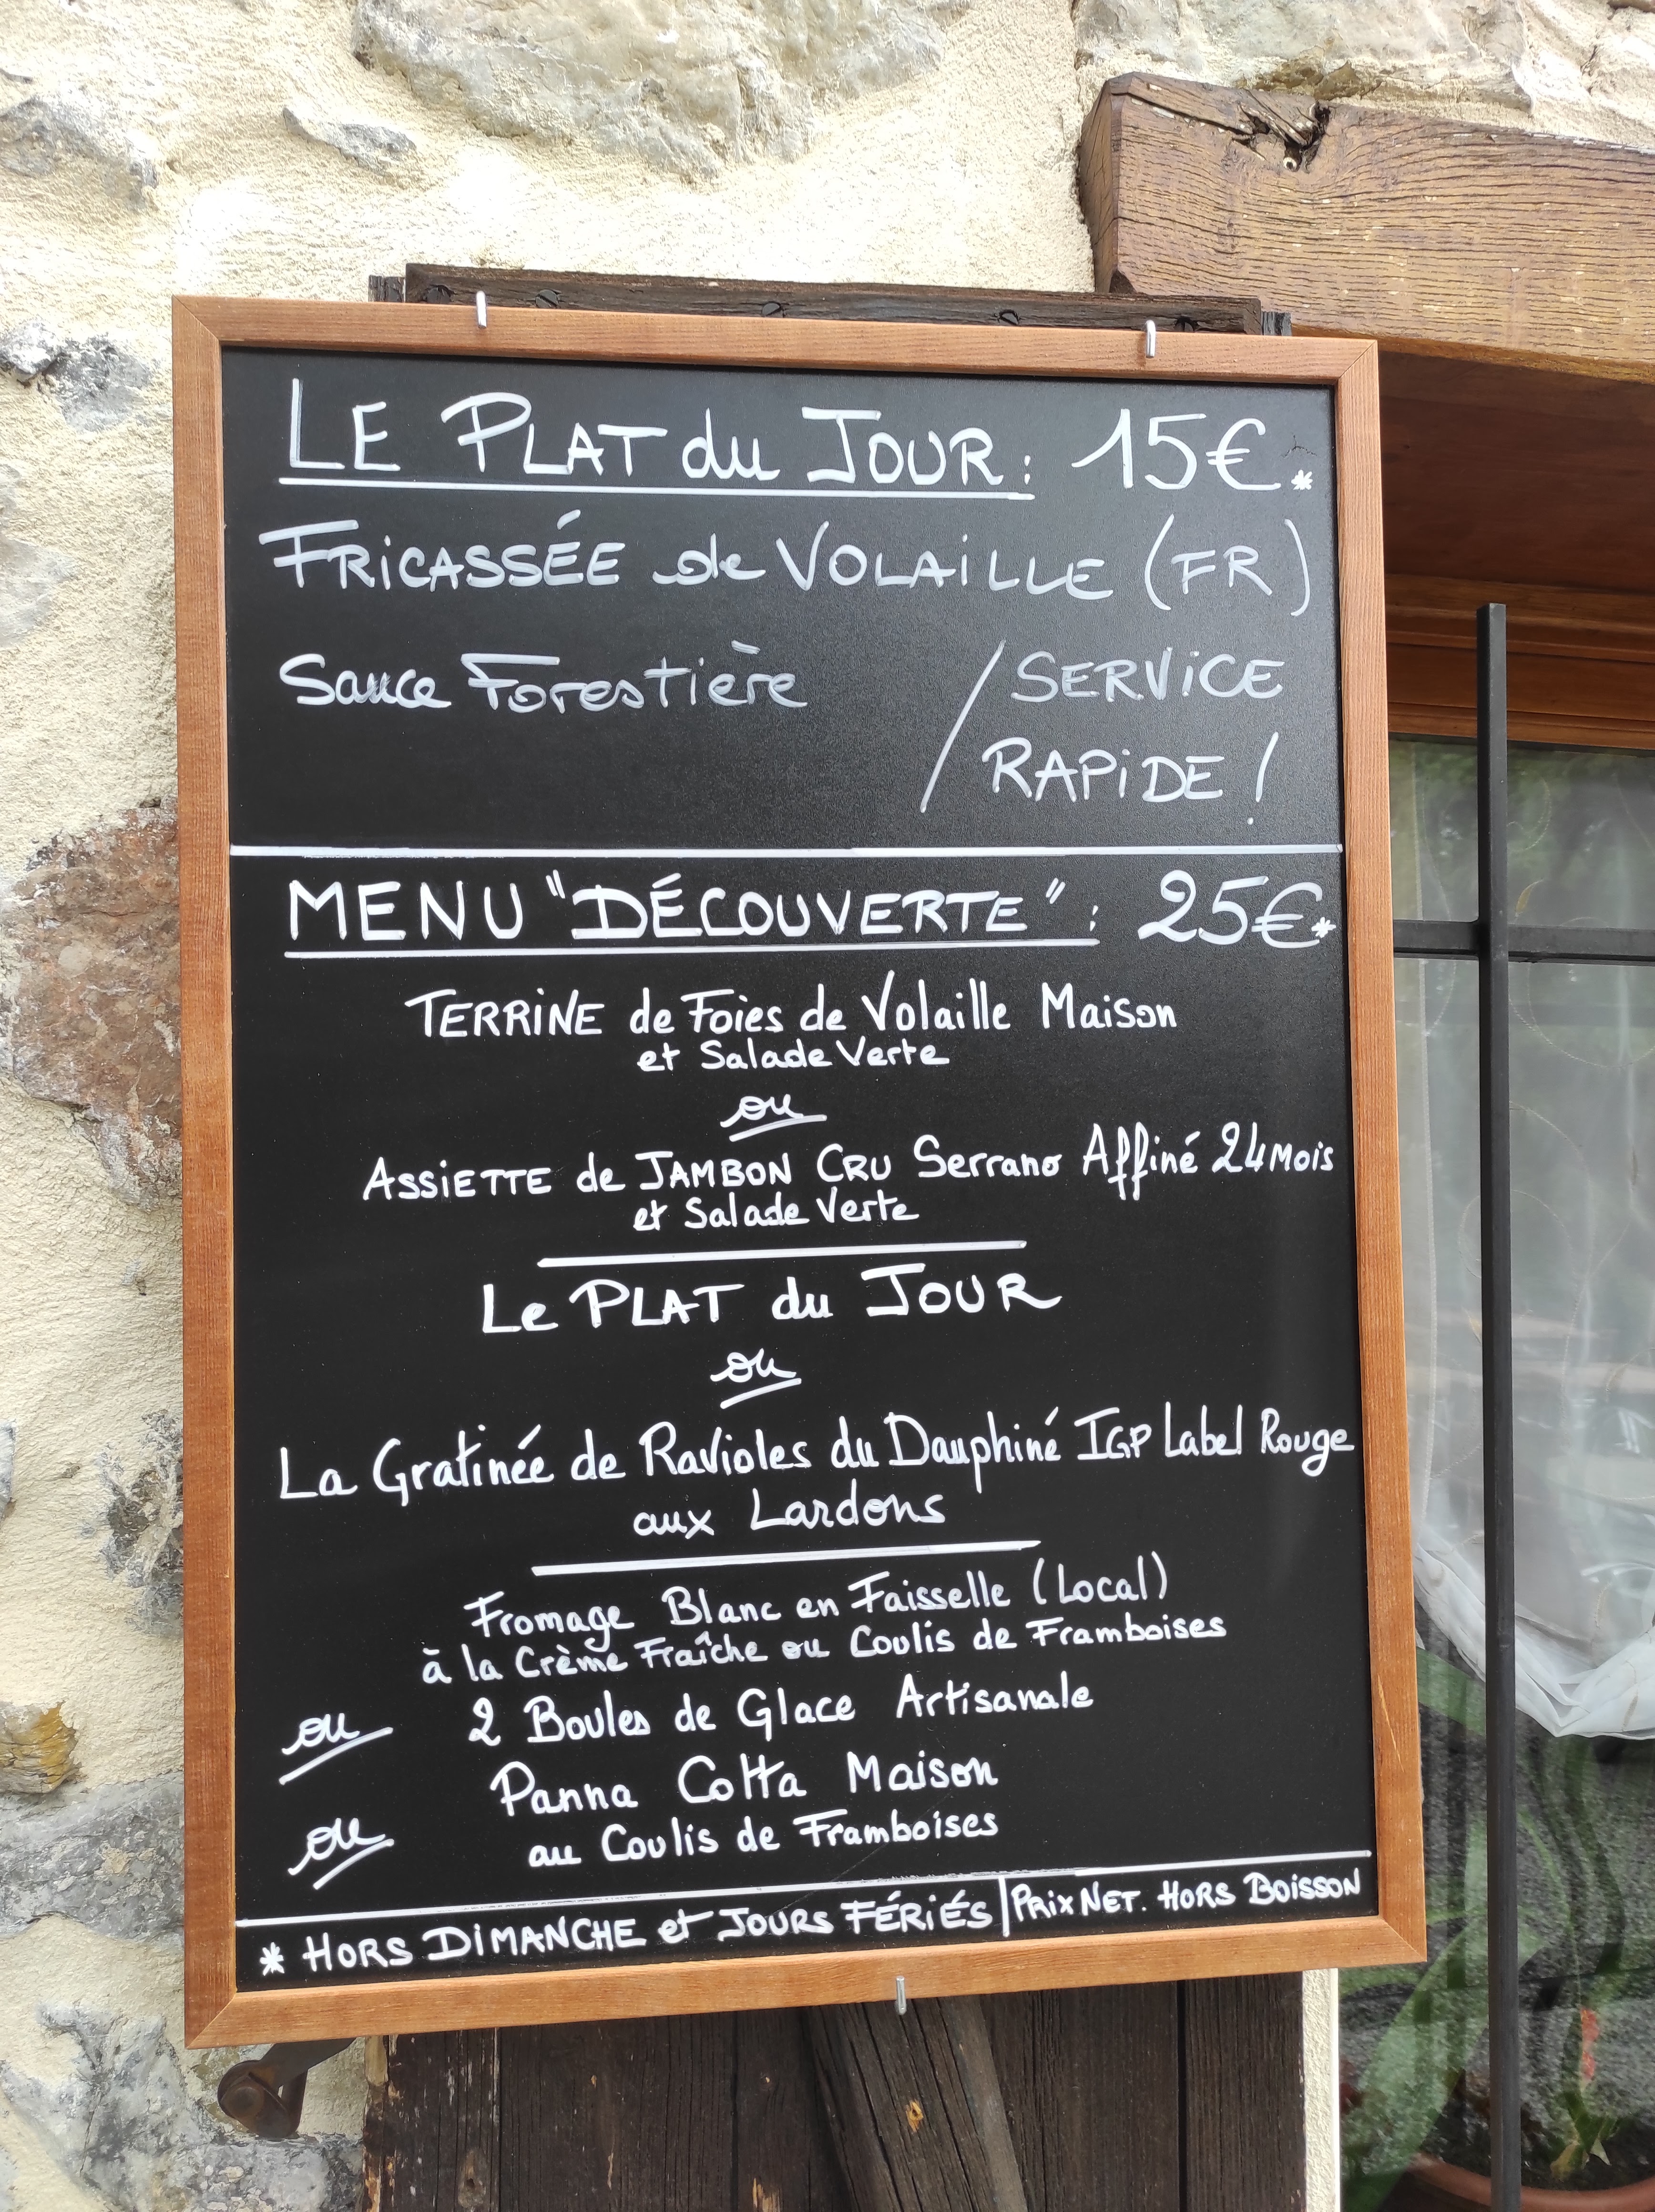 LE PLAT du JOUR : 15€*
FRICASSÉE de VOLAILLE (FR)
Sauce Forestière / SERVICE
RAPIDE !
MENU "DÉCOUVERTE" : 25€*
TERRINE de Foies de Volaille Maison
et Salade Verte
ou
ASSIETTE de JAMBON CRU Serrano Affiné 24 Mois
et Salade Verte
Le PLAT du JOUR
ou
La Gratinée de Ravioles du Dauphiné IGP Label Rouge
aux Lardons
Fromage Blanc en Faisselle (Local)
à la Crème Fraîche ou Coulis de Framboises
ou 2 Boules de Glace Artisanale
Panna Cotta Maison
ou au Coulis de Framboises
* HORS DIMANCHE et JOURS FÉRIÉS | PRIX NET. HORS BOISSON